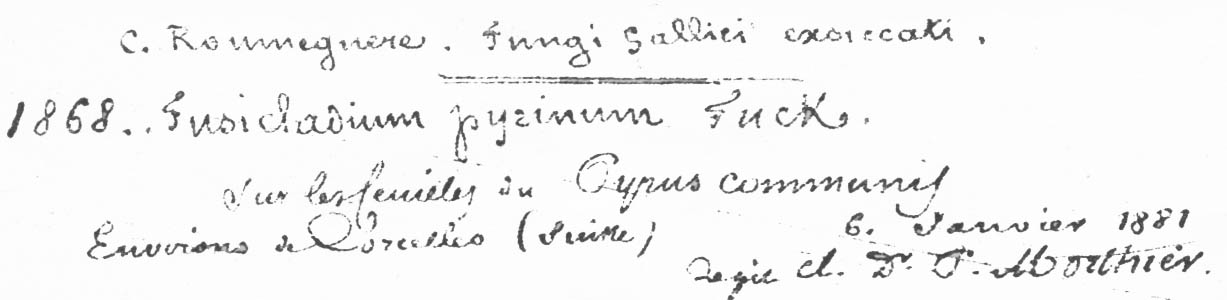 C. Roumeguere. Fungi Gallici exsiccati.
1868.. Fusicladium pyrinum Fuck.
Sur les feuilles du Pyrus communis
Environs de Corcelles (Suisse) 6. Janvier 1881
legit cl. Dr. P. Morthier.